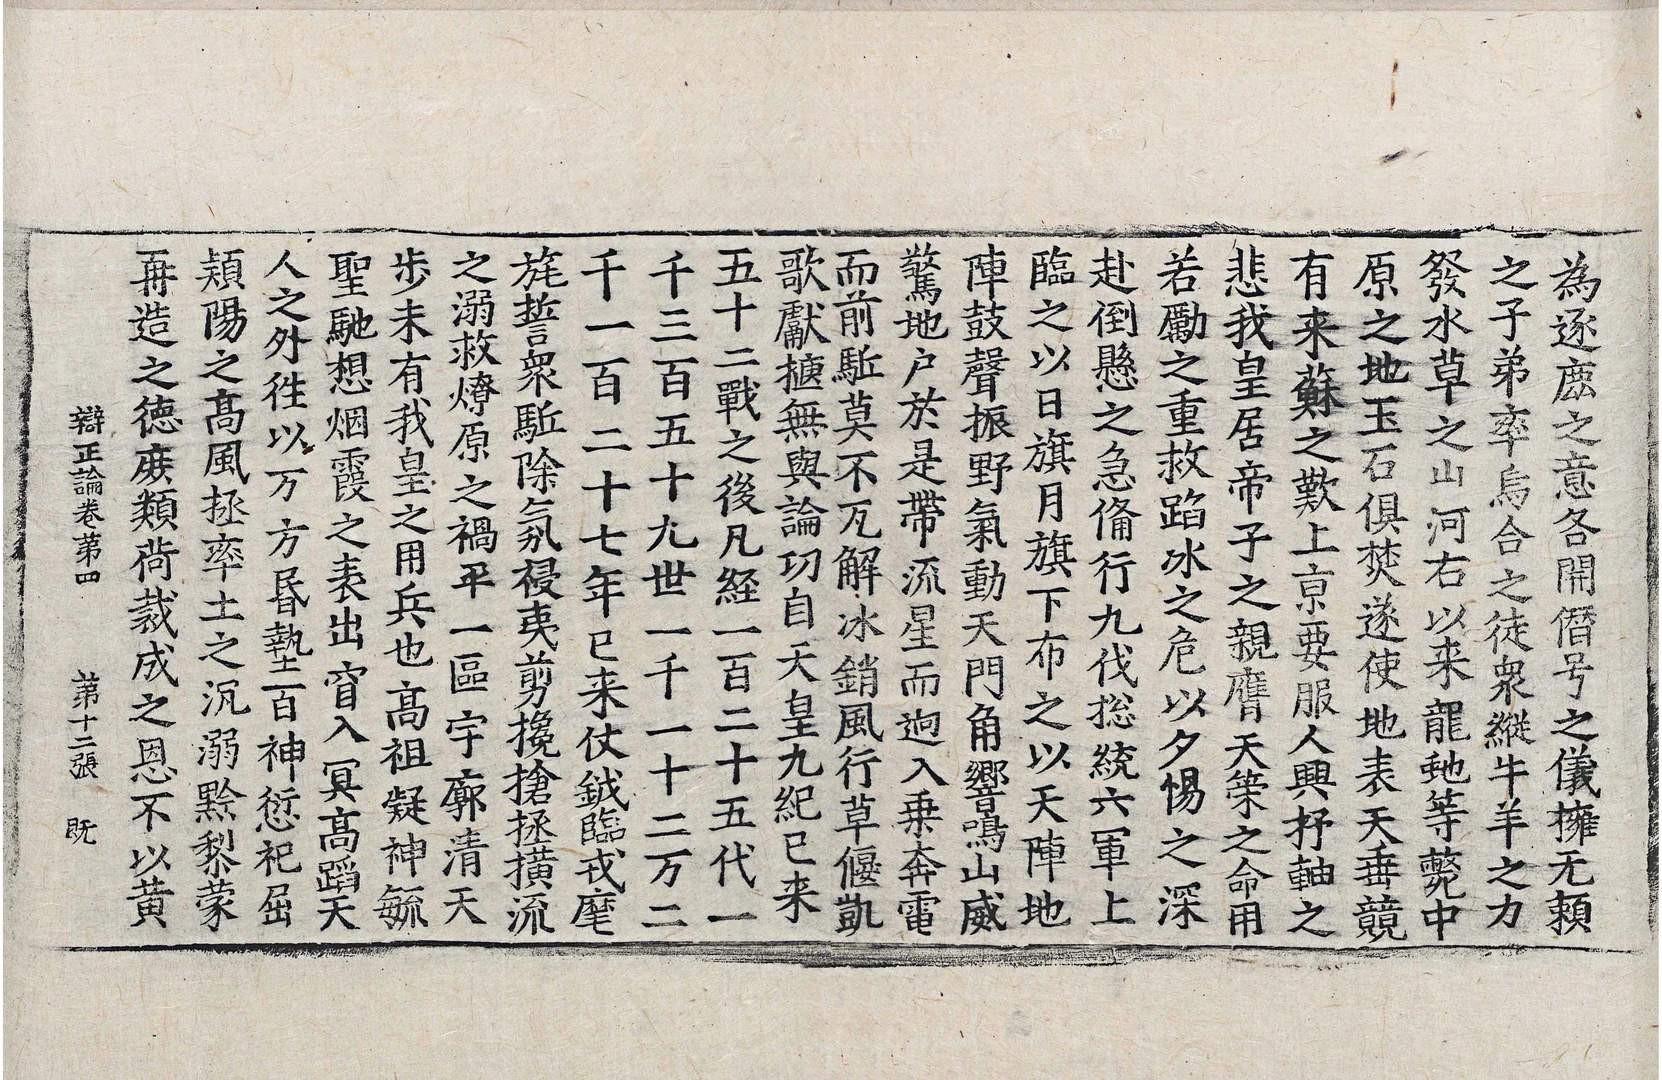 為逐鹿之意各開僭号之儀擁无頼
之子弟率烏合之徒衆縱牛羊之力
發水草之山河右以来龍虵等斃中
原之地玉石俱焚遂使地表天垂競
有来蘇之歎上京要服人興抒軸之
悲我皇居帝子之親膺天策之命用
若勵之重救蹈冰之危以夕惕之深
赴倒懸之急俻行九伐揔統六軍上
臨之以日旗月旗下布之以天陣地
陣鼓聲振野氣動天門角響鳴山威
驚地户於是帶流星而逈入乗奔電
而前駈莫不瓦解冰銷風行草偃凱
歌獻㨂無與論功自天皇九紀已来
五十二戰之後凡経一百二十五代一
千三百五十九世一千一十二万二
千一百二十七年已来仗鉞臨戎麾
旄誓衆駈除氛祲夷剪攙搶拯横流
之溺救燎原之禍平一區宇廓清天
步未有我皇之用兵也高祖凝神毓
聖馳想烟霞之表出窅入冥高蹈天
人之外徃以万方昏墊百神愆祀屈
頴陽之高風拯率土之沉溺黔黎蒙
再造之德庶類荷裁成之恩不以黄
辯正論卷第四 第十二張 既